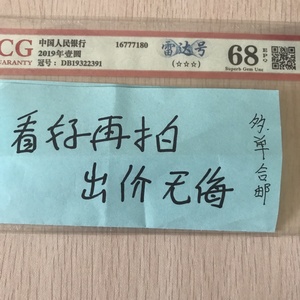 CG
WARRANTY
中国人民银行
2019年壹圆
冠号：DB19322391
16777180
雷达号
(☆☆☆)
68
EPQ
Superb Gem Unc
看好再拍
出价无悔
多单合邮